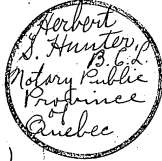 Herbert
S. Hunter,
B.C.L
Notary Public
Province
of
Quebec
)